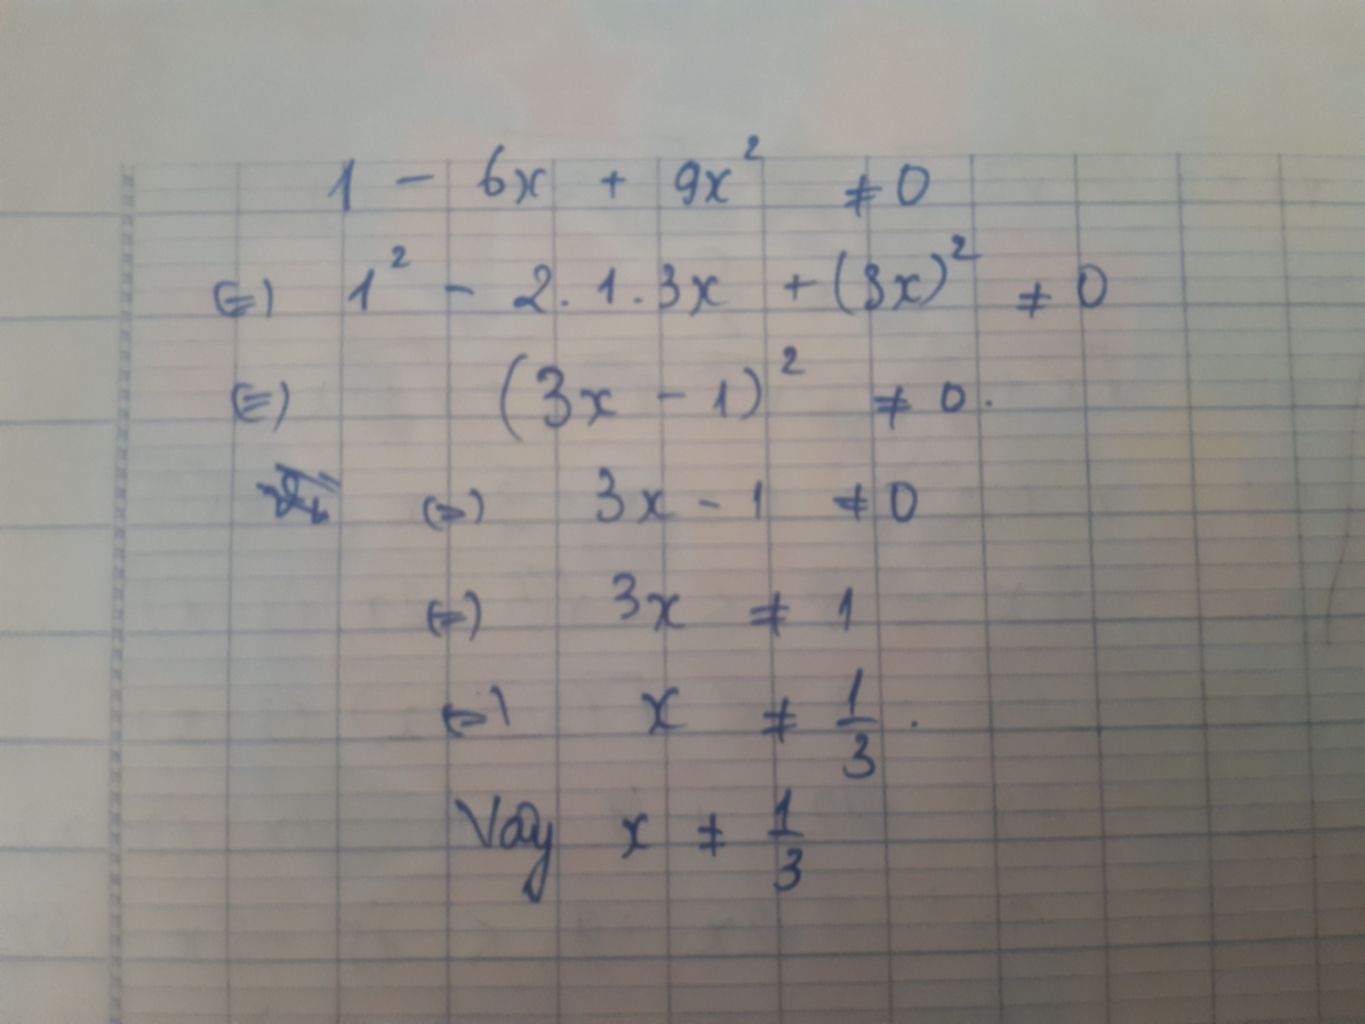 1 - 6x + 9x² ≠ 0
⇔ 1² - 2.1.3x + (3x)² ≠ 0
⇔ (3x - 1)² ≠ 0.
⇔ 3x - 1 ≠ 0
⇔ 3x ≠ 1
⇔ x ≠ 1/3.
Vậy x ≠ 1/3